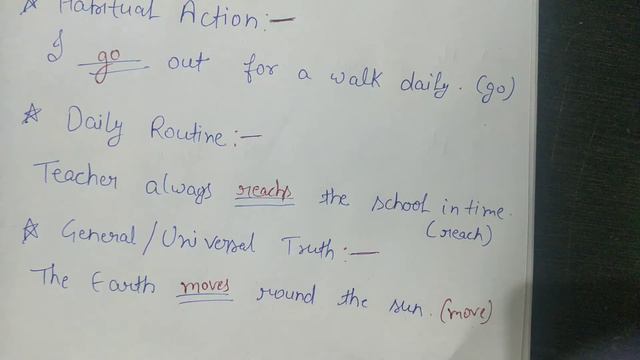 ☆ Habitual Action:-
I go out for a walk daily. (go)
☆ Daily Routine:-
Teacher always reachs the school in time.
(reach)
☆ General/Universal Truth:-
The Earth moves round the sun. (move)